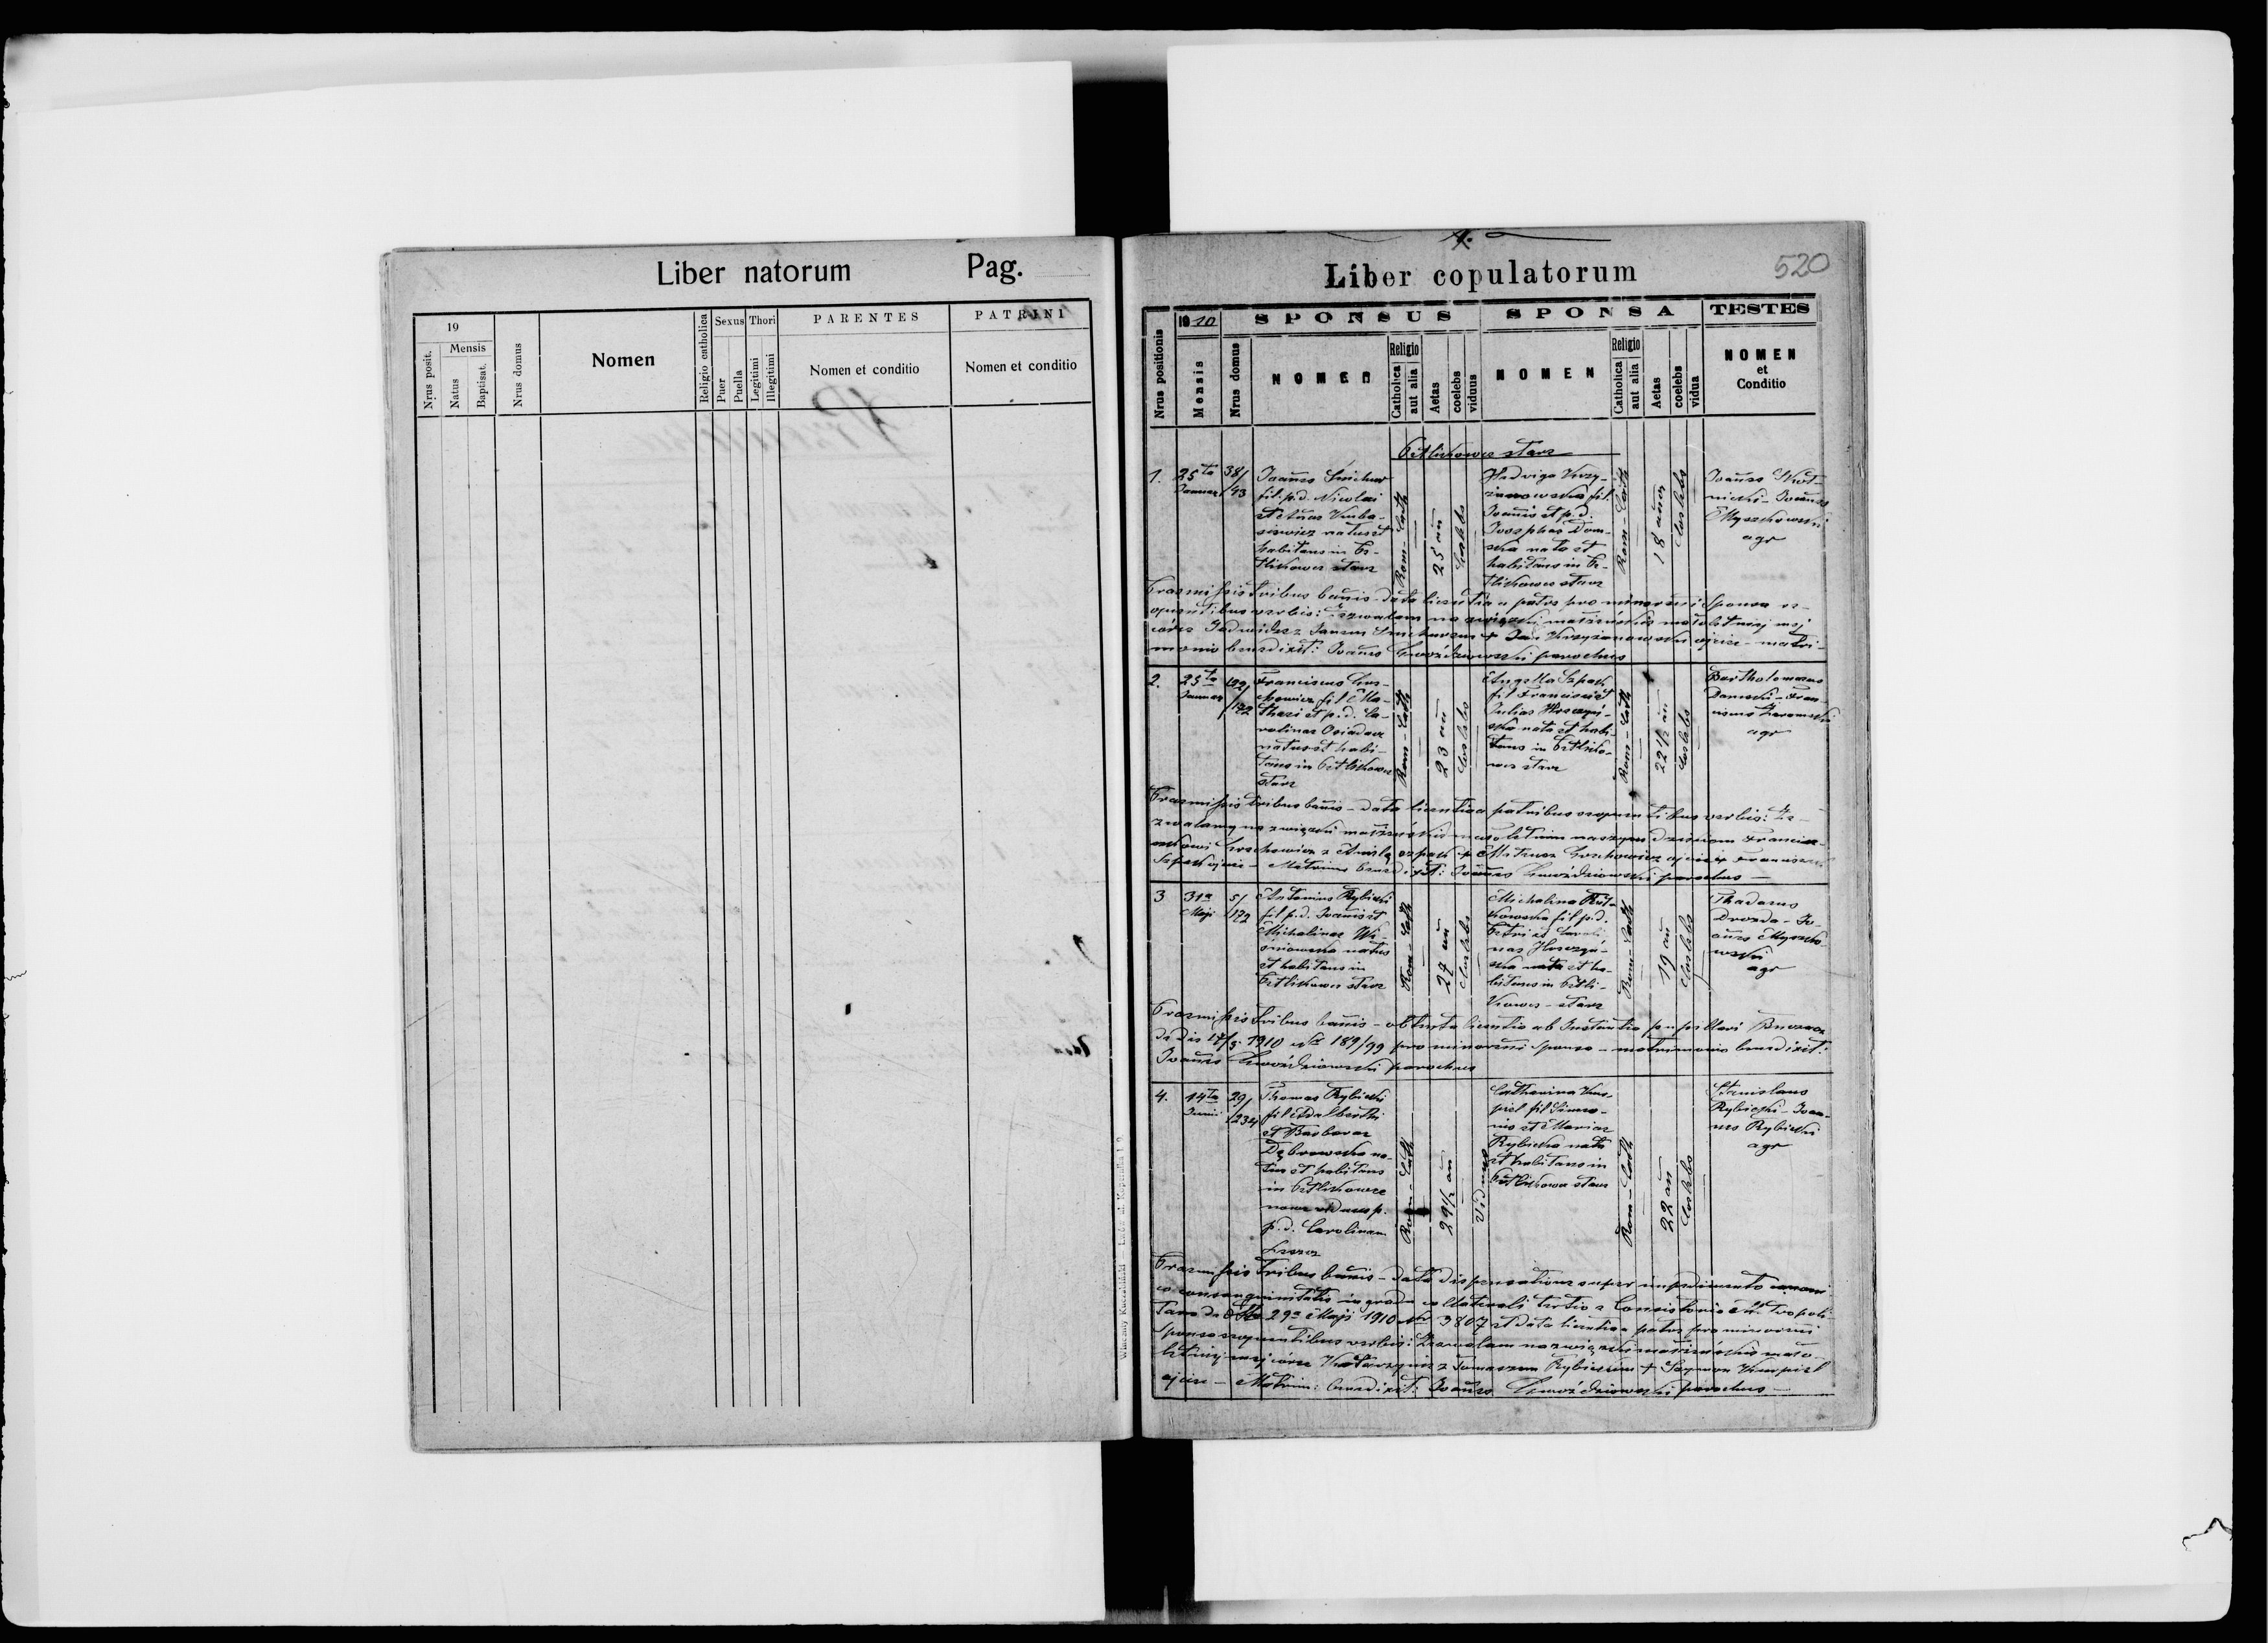 Liber natorum Pag.
19
Nrus posit.
Mensis
Natus
Baptisat.
Nrus domus
Nomen
Religio catholica
Sexus
Puer
Puella
Thori
Legitimi
Illegitimi
PARENTES
Nomen et conditio
PATRINI
Nomen et conditio
1.
Liber copulatorum
520
Nrus positionis
1910
Mensis
SPONSUS
Nrus domus
NOMEN
Religio
Catholica
aut alia
Aetas
coelebs
viduus
SPONSA
NOMEN
Religio
Catholica
aut alia
Aetas
coelebs
vidua
TESTES
NOMEN
et
Conditio
Petlikowce stare
1.
25ta
Januar
38/
/43
Joannes
fil. p.d. Nicolai
natus et
habitans in Pe-
tlikowce stare
Rom-Cath
25 an
Coelebs
Hedviga Krzy-
żanowska fil.
Joannis et p.d.
Josephae Dom-
ska nata et
habitans in Pe-
tlikowce stare
Rom-Cath
18 annor
Coelebs
Joannes
Joannes
Myszkowski
agr
Praemissis tribus bannis - data licentia a patre pro minoreni Sponsa se-
quentibus verbis: Zezwalam na związek małżeński małoletniej mej
córce Jadwidze z Janem + Jan Krzyżanowski ojciec - matri-
monio benedixit: Joannes Gwoździowski parochus
2.
25ta
Januar
122/
/172
Franciscus Gro-
chowicz fil Ma-
thaei et p.d. Ca-
rolinae Osiadacz
natus et habi-
tans in Petlikowce
stare
Rom-Cath
23 an
Coelebs
Angella Szpak
fil Francisci et
Juliae
nata et habi-
tans in Petliko-
wce stare
Rom-Cath
22 1/2 an
Coelebs
Bartholomaeus
Domski - Fran-
ciscus
agr
Praemissis tribus bannis - data licentia a patribus sequentibus verbis: Ze-
zwalamy na związek małżeński małoletnim naszym dzieciom Francisz-
kowi Grochowicz z Anielą Szpak + Mateusz Grochowicz ojciec + Franciszek
Szpak ojciec - Matrim: benedixit: Joannes Gwoździowski parochus -
3
31a
Maji
51/
/172
Antonius Rybicki
fil p.d. Joannis et
Michalinae Wi-
śniowska natus
et habitans in
Petlikowce stare
Rom-Cath
27 an
Coelebs
Michalina Rut-
kowska fil p.d.
Petri et Caroli-
nae
nata et ha-
bitans in Petli-
kowce - stare
Rom-Cath
19 an
Coelebs
Thadaeus
Drozda - Jo-
annes Myszko-
wski
agr
Praemissis tribus bannis - obtenta licentia ab Instantia pupillari Buczacz
de die 17/5 1910 No 189/99 pro minoreni sponsa - matrimonio benedixit:
Joannes Gwoździowski parochus
4.
14ta
Junii
29/
/234
Thomas Rybicki
fil Adalberti
et Barbarae
Dąbrowska na-
tus et habitans
in Petlikowce
nowe viduus p.
p.d. Carolinam
Rom-Cath
29 1/2 an
Viduus
Catharina Kem-
piel fil Simeo-
nis et Mariae
Rybicka nata
et habitans in
Petlikowce stare
Rom-Cath
22 an
Coelebs
Stanislaus
Rybicki - Joan-
nes Rybicki
agr
Praemissis tribus bannis - data dispensatione super impedimento
consanguinitatis in gradu collaterali tertio a Consistorio Metropoli-
tano de dtto 29a Maji 1910 No 3807 et data licentia a patre pro minoreni
Sponsa sequentibus verbis: Zezwalam na związek małżeński mało-
letniej mej córce Katarzynie z Tomaszem Rybickim + Szymon Kempiel
ojciec - Matrim: benedixit: Joannes Gwoździowski parochus -